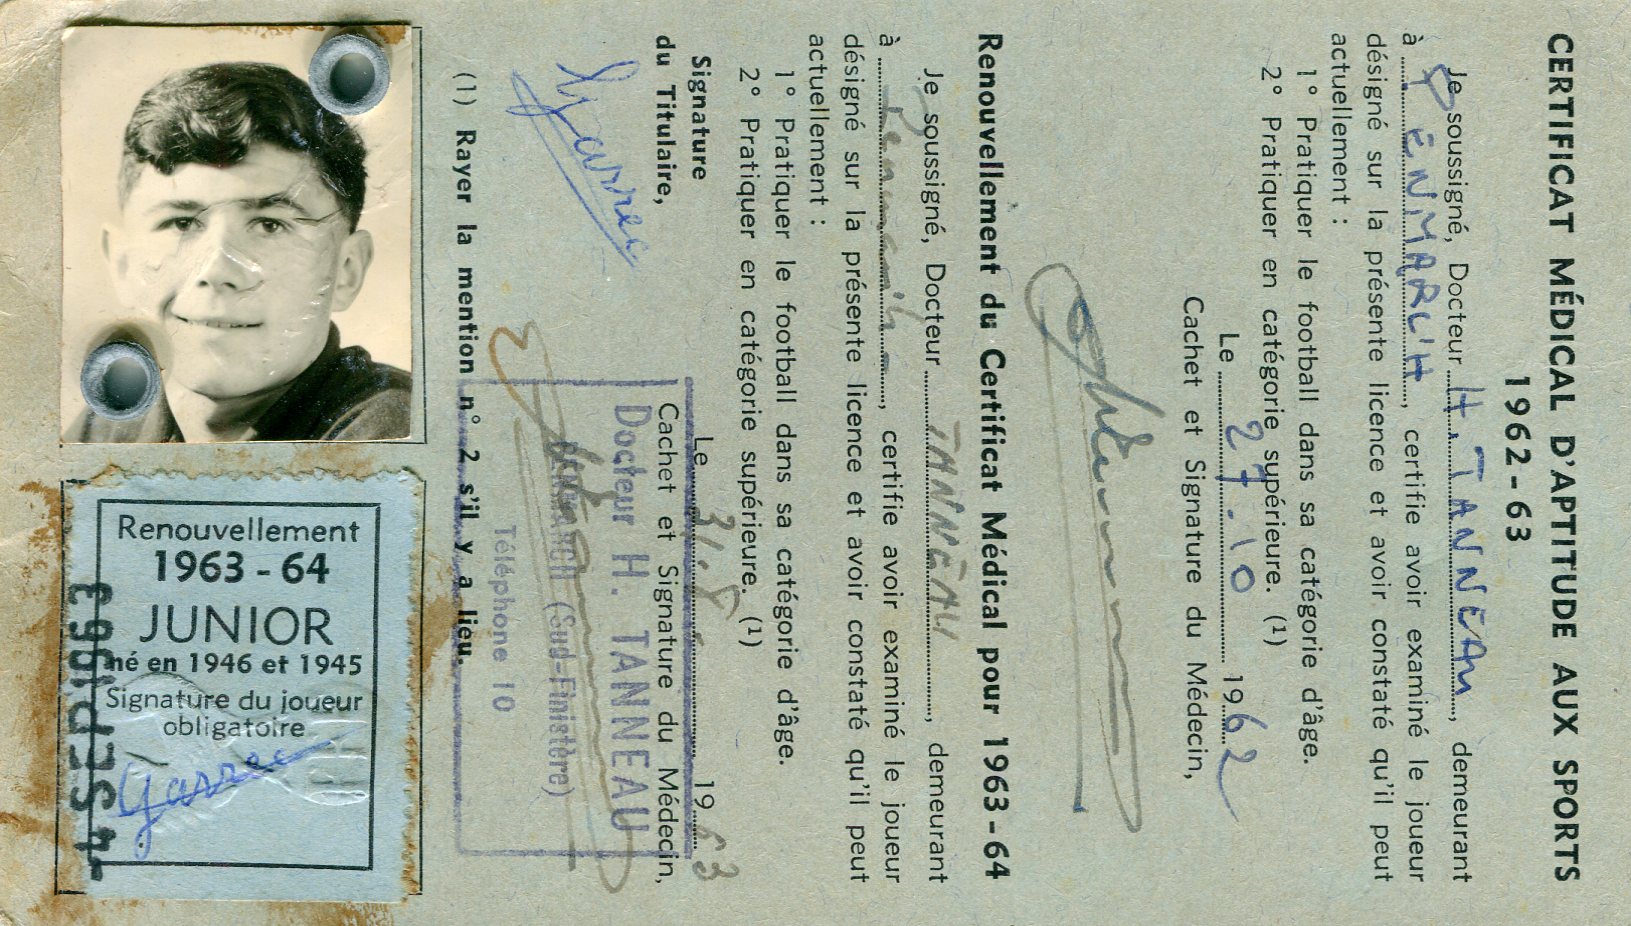 CERTIFICAT MÉDICAL D'APTITUDE AUX SPORTS
1962 - 63
Je soussigné, Docteur H. TANNEAU, demeurant
à PENMARC'H, certifie avoir examiné le joueur
désigné sur la présente licence et avoir constaté qu'il peut
actuellement :
1° Pratiquer le football dans sa catégorie d'âge.
2° Pratiquer en catégorie supérieure. (1)
Le 27.10 1962
Cachet et Signature du Médecin,
Renouvellement du Certificat Médical pour 1963-64
Je soussigné, Docteur TANNEAU, demeurant
à Penmarc'h, certifie avoir examiné le joueur
désigné sur la présente licence et avoir constaté qu'il peut
actuellement :
1° Pratiquer le football dans sa catégorie d'âge.
2° Pratiquer en catégorie supérieure. (1)
Le 31.8 1963
Signature
du Titulaire,
Cachet et Signature du Médecin,
Docteur H. TANNEAU
PENMARCH (Sud-Finistère)
Téléphone 10
(1) Rayer la mention n° 2 s'il y a lieu.
Renouvellement
1963 - 64
JUNIOR
né en 1946 et 1945
Signature du joueur
obligatoire
Garrec
-4 SEP 1963